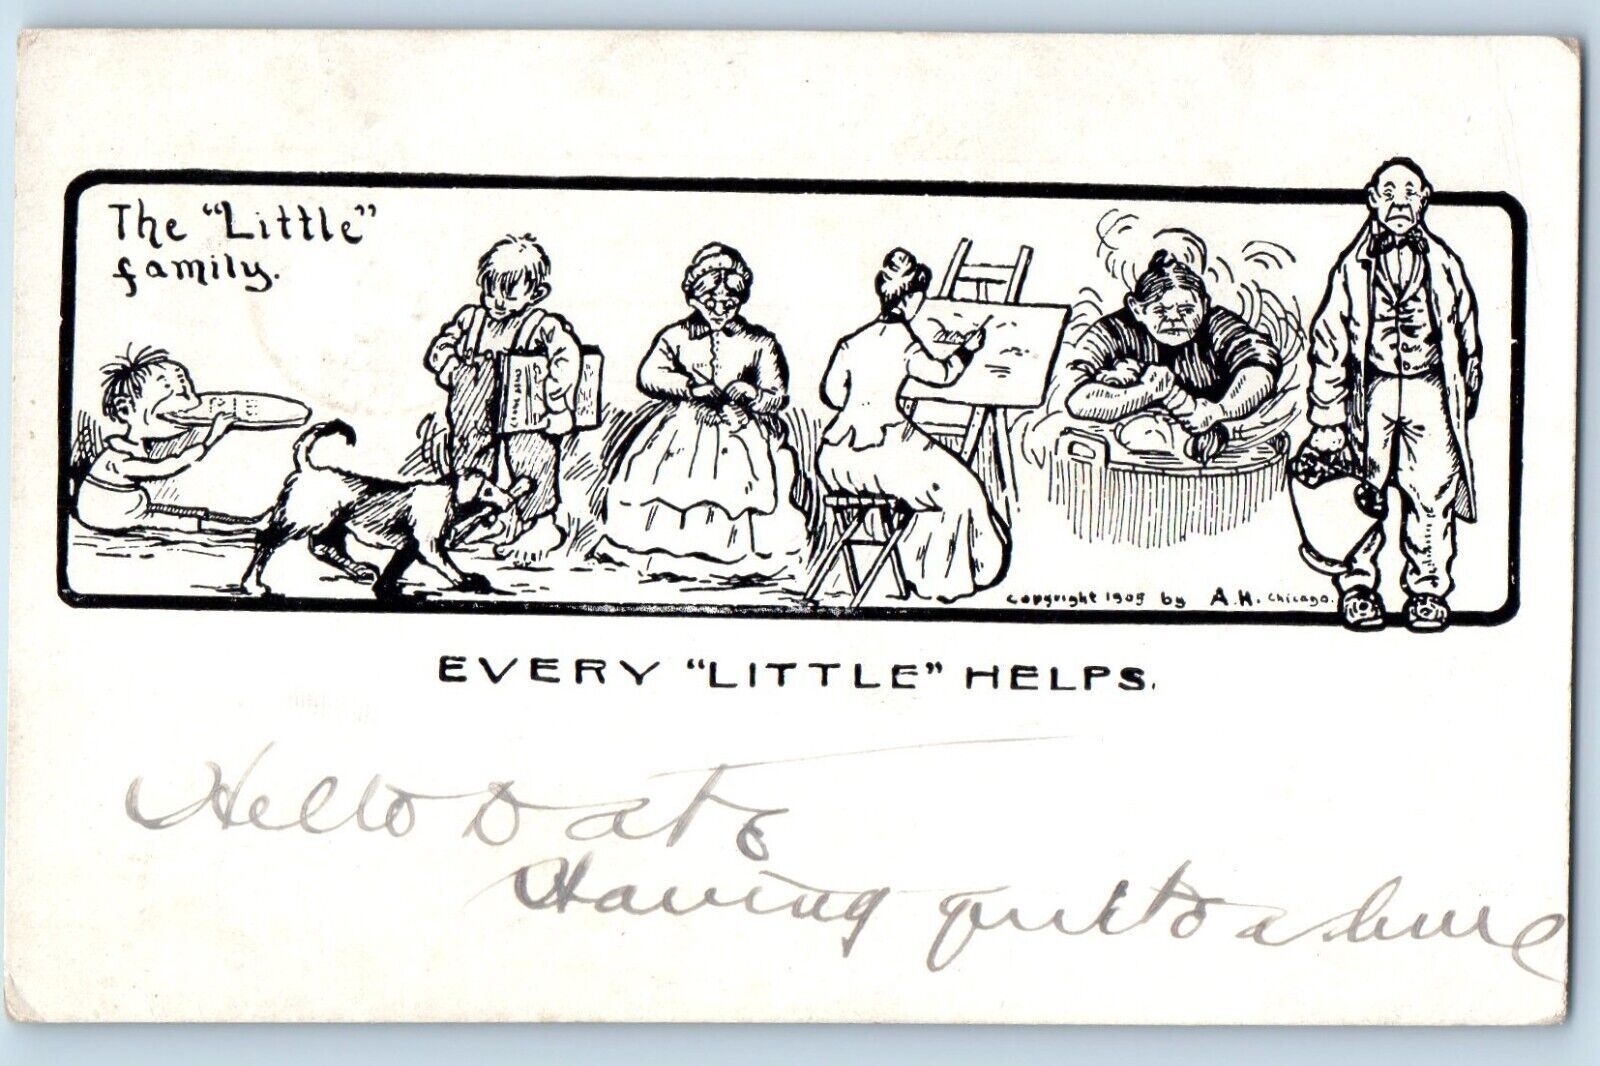 The "Little"
family.
copyright 1905 by A.H. Chicago.
EVERY "LITTLE" HELPS.
Hello
Having quite a time